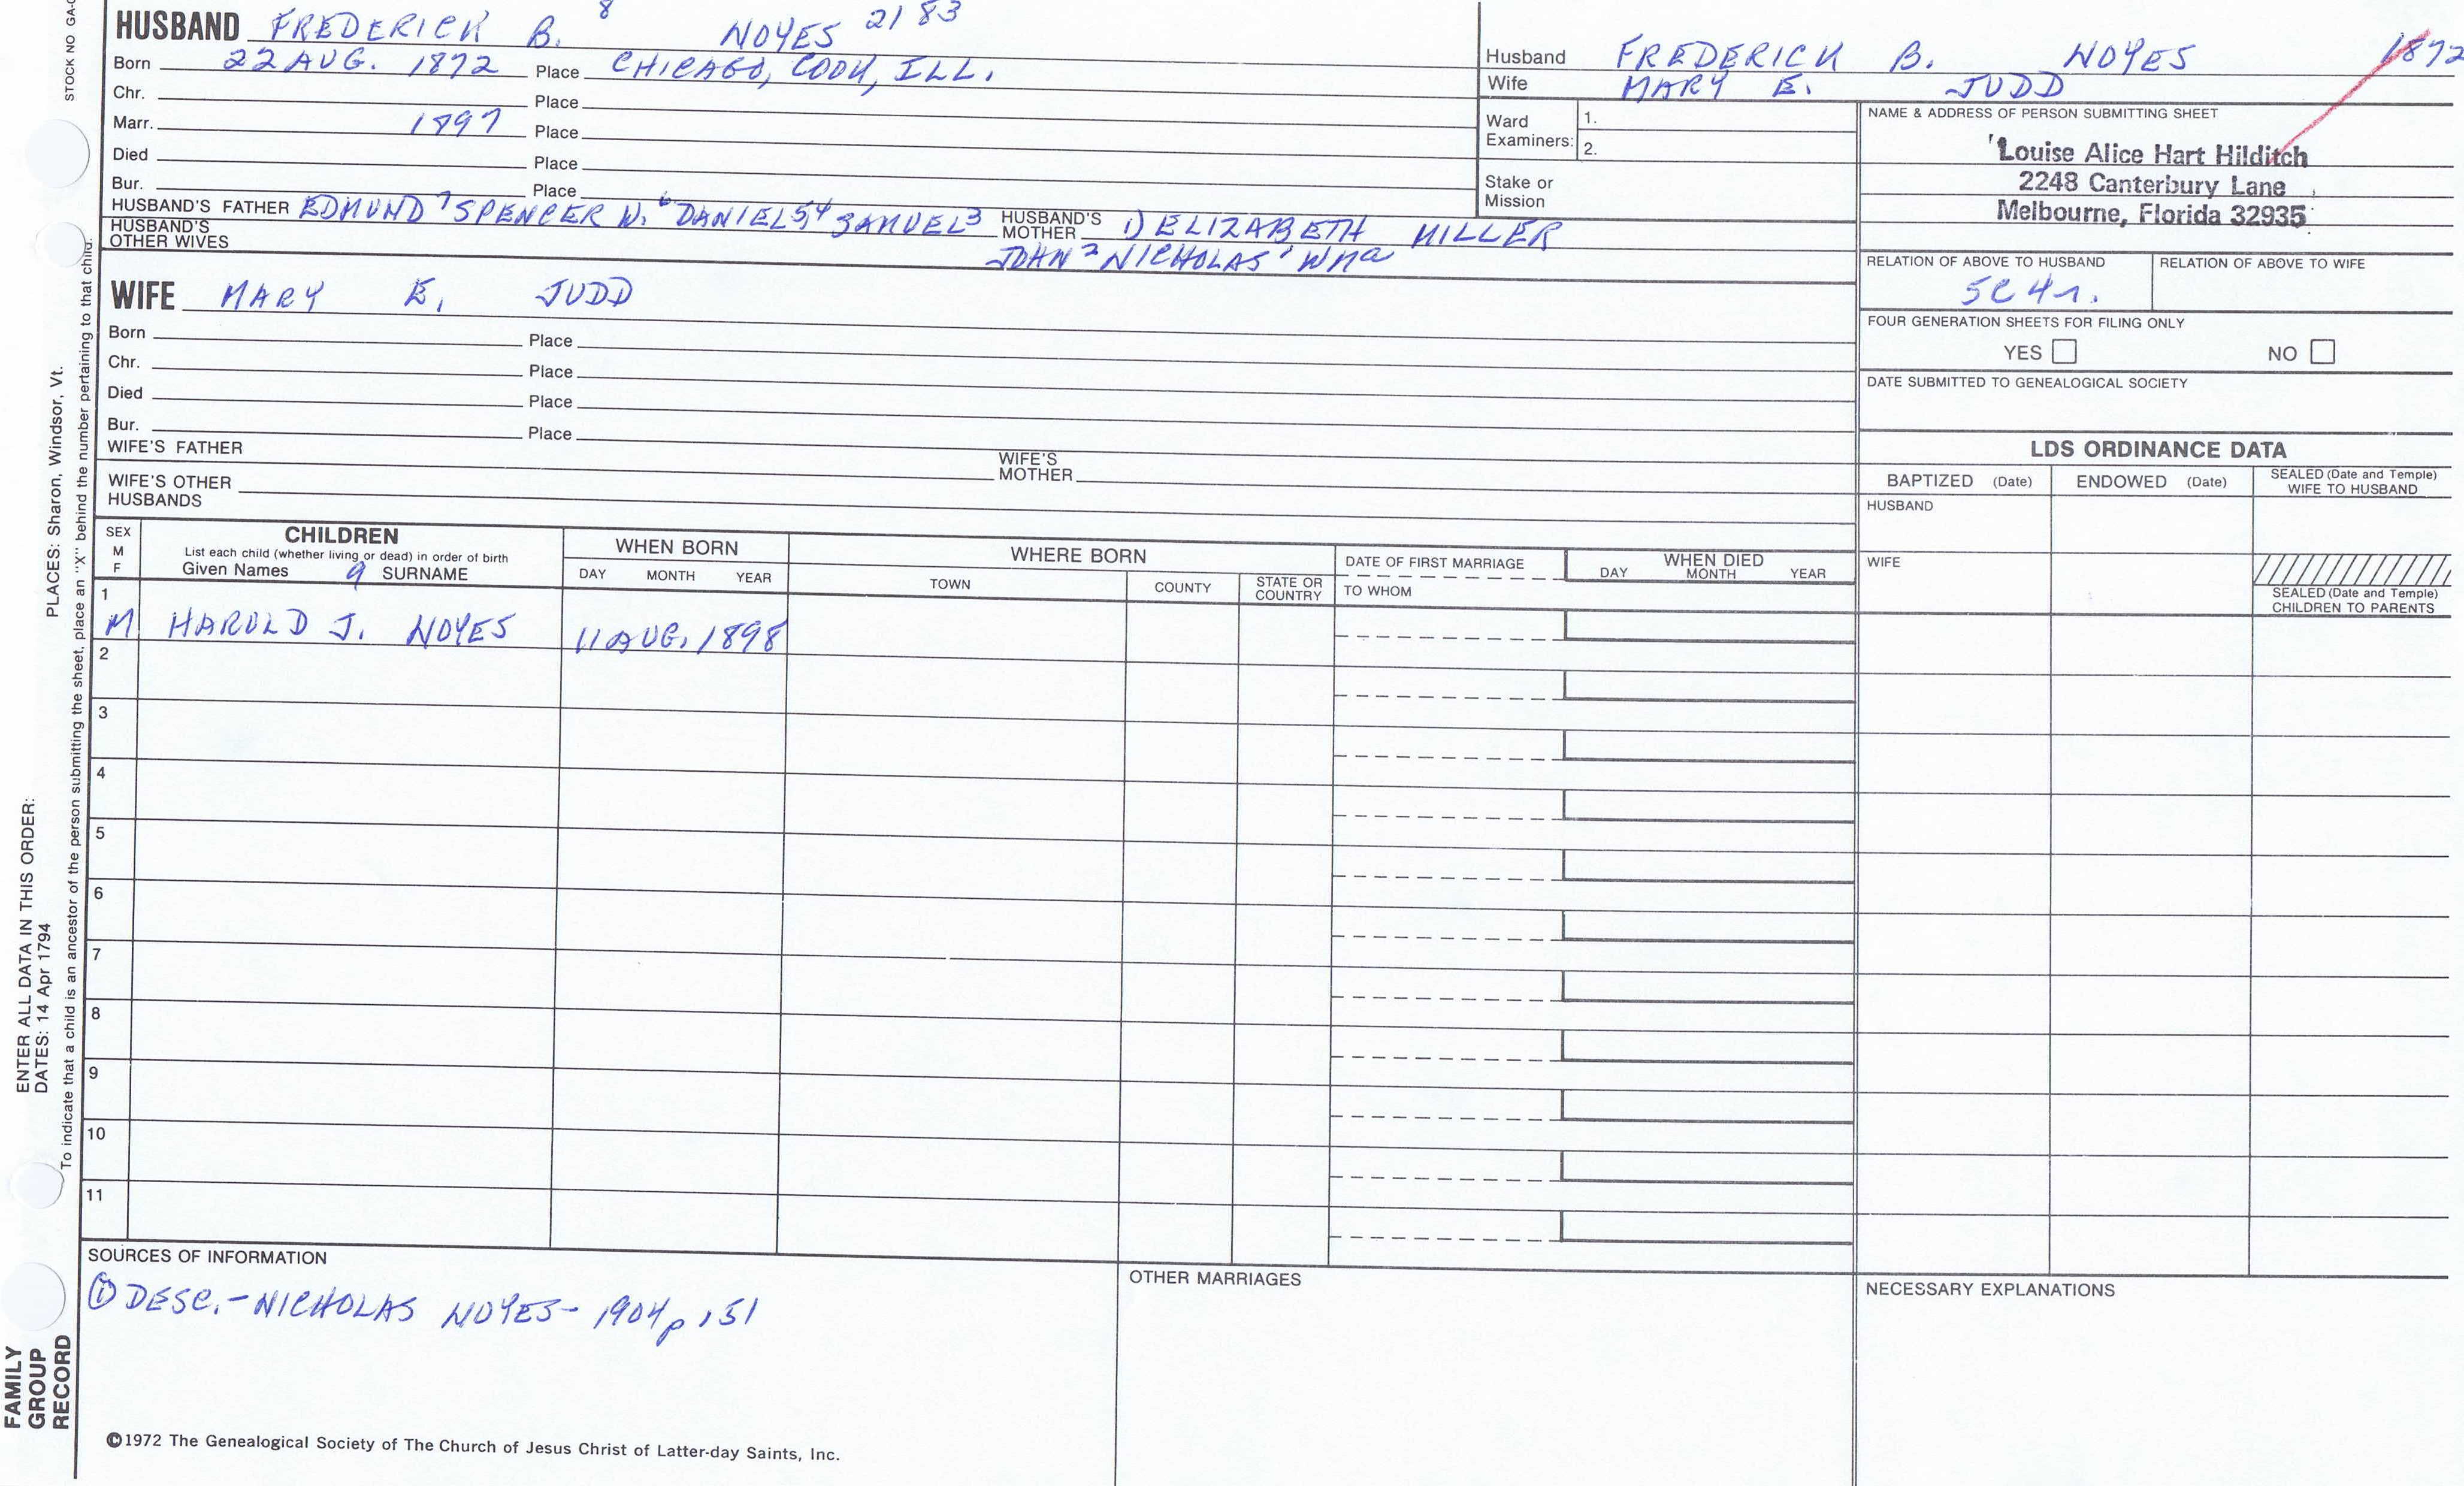 STOCK NO GA-
HUSBAND FREDERICK B. 8 NOYES 2183
Born 22 AUG. 1872 Place CHICAGO, COOK, ILL.
Chr. Place
Marr. 1897 Place
Died Place
Bur. Place
HUSBAND'S FATHER EDMUND 7 SPENCER W. 6 DANIEL 54 SAMUEL 3 HUSBAND'S MOTHER 1) ELIZABETH MILLER
HUSBAND'S OTHER WIVES JOHN 2 NICHOLAS 1 Wm a
WIFE MARY E. JUDD
Born Place
Chr. Place
Died Place
Bur. Place
WIFE'S FATHER WIFE'S MOTHER
WIFE'S OTHER HUSBANDS
Husband FREDERICK B. NOYES 1872
Wife MARY E. JUDD
Ward Examiners: 1.
2.
Stake or Mission
NAME & ADDRESS OF PERSON SUBMITTING SHEET
Louise Alice Hart Hilditch
2248 Canterbury Lane
Melbourne, Florida 32935
RELATION OF ABOVE TO HUSBAND RELATION OF ABOVE TO WIFE
5C4r.
FOUR GENERATION SHEETS FOR FILING ONLY
YES NO
DATE SUBMITTED TO GENEALOGICAL SOCIETY
LDS ORDINANCE DATA
BAPTIZED (Date) ENDOWED (Date) SEALED (Date and Temple) WIFE TO HUSBAND
HUSBAND
WIFE
SEALED (Date and Temple) CHILDREN TO PARENTS
SEX M F
CHILDREN
List each child (whether living or dead) in order of birth
Given Names 9 SURNAME
WHEN BORN
DAY MONTH YEAR
WHERE BORN
TOWN COUNTY STATE OR COUNTRY
DATE OF FIRST MARRIAGE
TO WHOM
WHEN DIED
DAY MONTH YEAR
1
M HAROLD J. NOYES 11 AUG. 1898
2
3
4
5
6
7
8
9
10
11
SOURCES OF INFORMATION
① DESC. - NICHOLAS NOYES - 1904 p 151
OTHER MARRIAGES
NECESSARY EXPLANATIONS
©1972 The Genealogical Society of The Church of Jesus Christ of Latter-day Saints, Inc.
FAMILY
GROUP
RECORD
ENTER ALL DATA IN THIS ORDER:
DATES: 14 Apr 1794
PLACES: Sharon, Windsor, Vt.
To indicate that a child is an ancestor of the person submitting the sheet, place an "X" behind the number pertaining to that child.